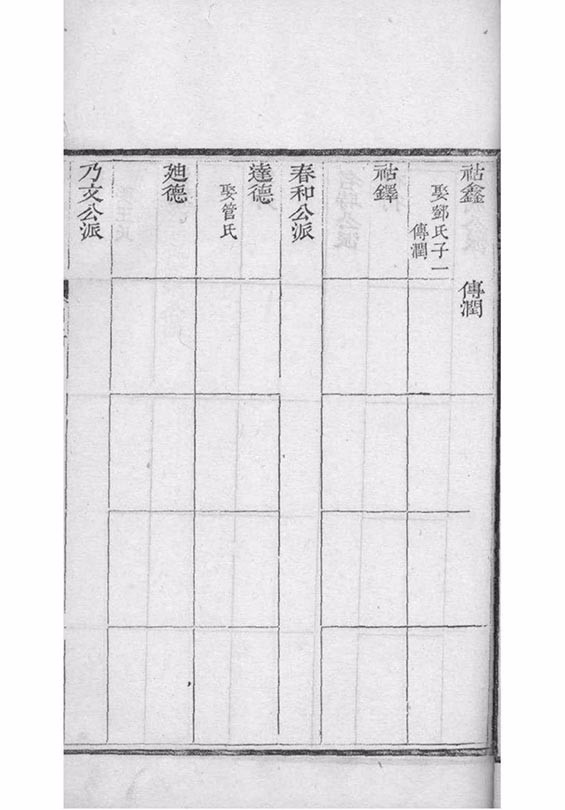 祜鑫
娶鄧氏子一
傳潤
傳潤
祜鐸
春和公派
達德
娶管氏
廸德
乃文公派